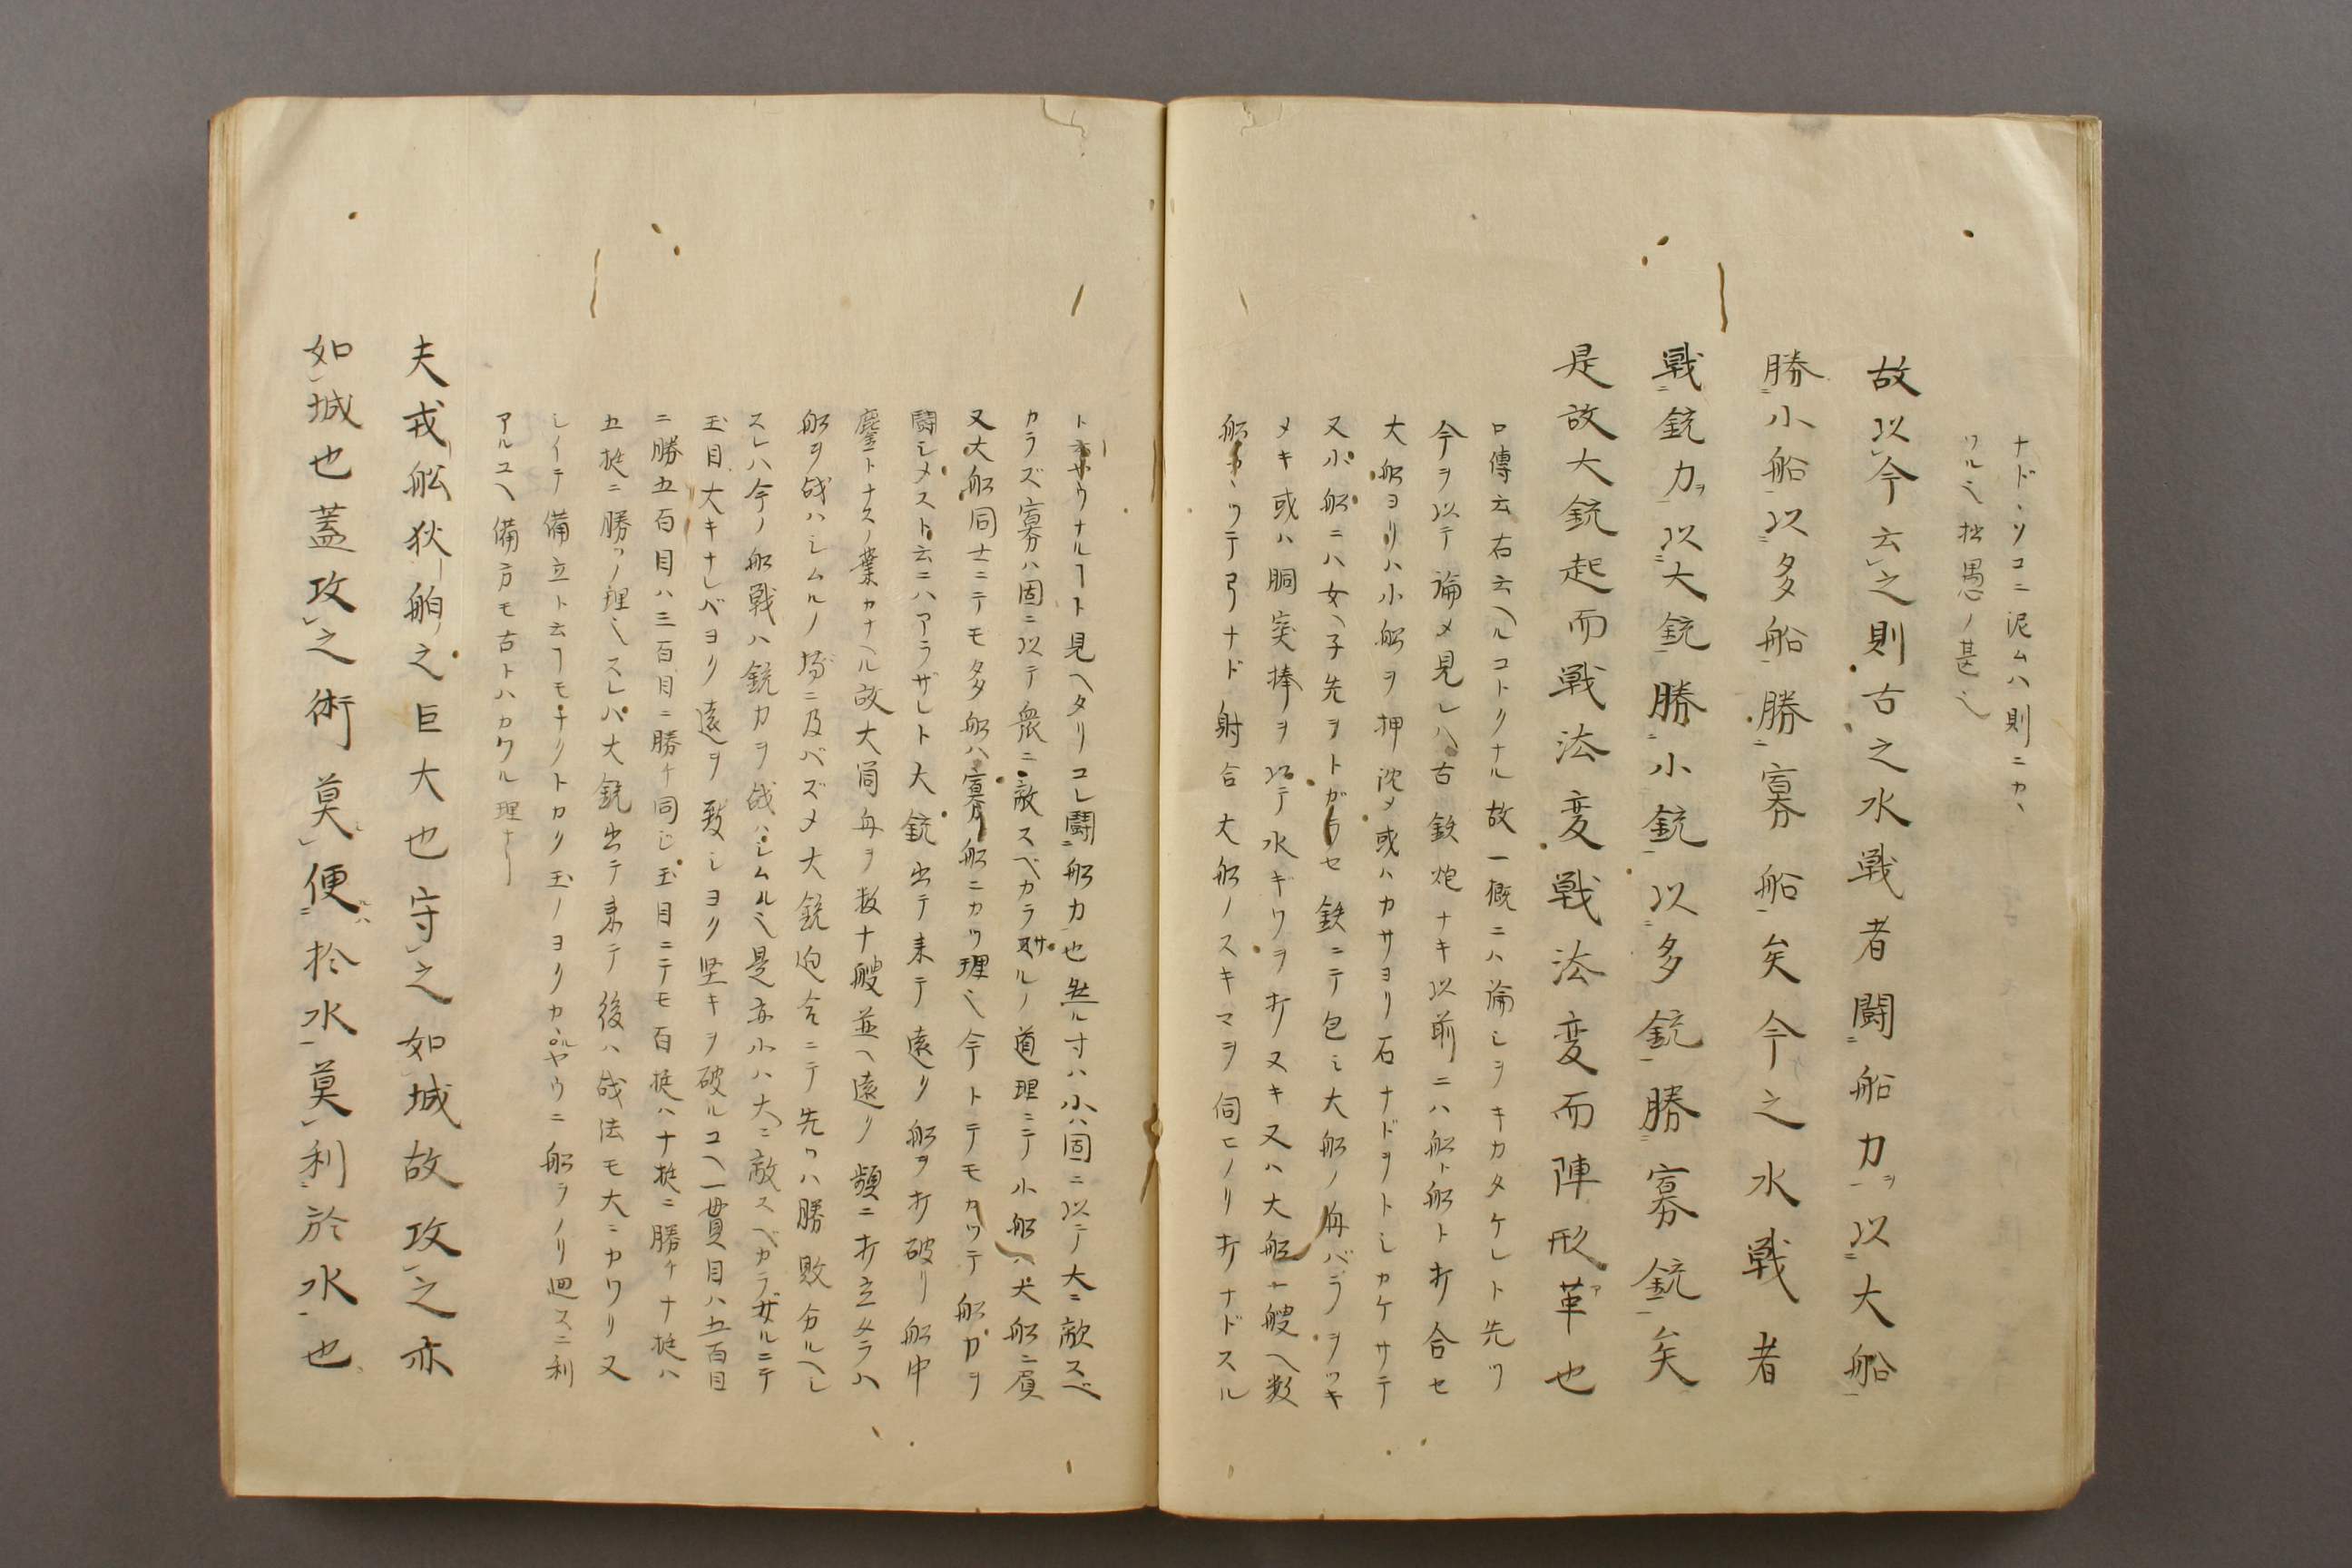 ナドヽソコニ泥ムハ則ニカヽ
ワル也拙愚ノ甚也
故以今云之則古之水戦者闘船力ヲ以大船
勝小船以多船勝寡船矣今之水戦者
戦銃力ヲ以大銃勝小銃以多銃勝寡銃矣
是故大銃起而戦法変戦法変而陣形革也
口傳云右云ヘルコトクナル故一概ニハ論シヲキカタケレト先ツ
今ヲ以テ論メ見レハ古鉄炮ナキ以前ニハ船ト船ト打合セ
大船ヨリハ小船ヲ押沈メ或ハカサヨリ石ナドヲトシカケサテ
又小船ニハ女ヘ子先ヲトガラセ鉄ニテ包ミ大船ノ舟バラヲツキ
メキ或ハ胴突棒ヲ以テ水ギワヲ打ヌキ又ハ大船十艘ヘ数
船カヽツテ弓ナド射合大船ノスキマヲ伺ヒノリ打ナドスル
ト云ヤウナルヿト見ヘタリコレ闘船力也然ル寸ハ小ハ固ニ以テ大ニ敵スベ
カラズ寡ハ固ニ以テ衆ニ敵スベカラザルノ道理ニテ小船ハ大船ニ負
又大船同士ニテモ多船ハ寡船ニカツ理也今トテモカツテ船力ヲ
闘シメストニ云ニハアラザレト大銃出テ来テ遠ク船ヲ打破リ船中
塵トナスノ業カナヘル故大筒舟ヲ数十艘並ヘ遠ク頻ニ打立ラハ
船ヲ戦ハシムルノ場ニ及バズメ大銃迫合ニテ先ツハ勝敗分ルヘシ
スレハ今ノ船戦ハ銃力ヲ戦ハシムル也是亦小ハ大ニ敵スベカラザルニテ
玉目大キナレバヨク遠ヲ致シヨク堅キヲ破ルユヘ一貫目ハ五百目
ニ勝五百目ハ三百目ニ勝チ同シ玉目ニテモ百挺ハ十挺ニ勝チ十挺ハ
五挺ニ勝フノ理也スレハ大銃出テ来テ後ハ戦法モ大ニカワリ又
シイテ備立ト云ヿモナクトカク玉ノヨクカヽルヤウニ船ヲノリ廻スニ利
アルユヘ備方モ古トハカワル理ナリ
夫戎舩狄舶之巨大也守之如城故攻之亦
如城也蓋攻之術莫便於水莫利於水也